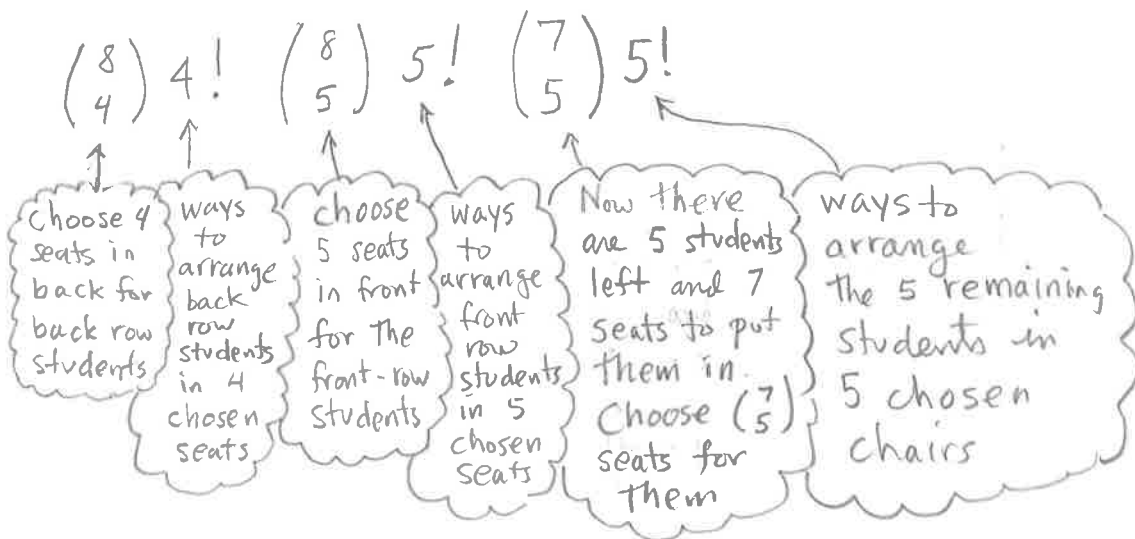 (8 4) 4! (8 5) 5! (7 5) 5!
Choose 4
seats in
back for
back row
students
ways
to
arrange
back
row
students
in 4
chosen
seats
choose
5 seats
in front
for the
front-row
students
ways
to
arrange
front
row
students
in 5
chosen
seats
Now there
are 5 students
left and 7
seats to put
them in.
Choose (7 5)
seats for
them
ways to
arrange
the 5 remaining
students in
5 chosen
chairs